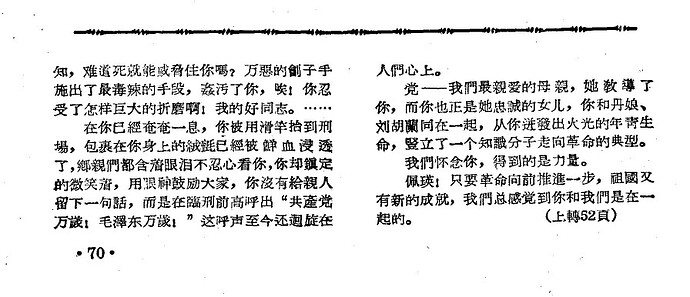 知，难道死就能威脅住你嗎？万惡的劊子手
施出了最毒辣的手段，姦汚了你，唉！你忍
受了怎样巨大的折磨啊！我的好同志。……
在你已經奄奄一息，你被用滑竿抬到刑
場，包裹在你身上的絨毯已經被鮮血浸透
了，鄉親們都含着眼泪不忍心看你，你却鎮定
的微笑着，用眼神鼓励大家，你沒有給親人
留下一句話，而是在臨刑前高呼出“共產党
万歲！毛澤东万歲！”这呼声至今还迴旋在
人們心上。
党——我們最親爱的母親，她教導了
你，而你也正是她忠誠的女儿，你和丹娘、
刘胡蘭同在一起，从你迸發出火光的年青生
命，豎立了一个知識分子走向革命的典型。
我們怀念你，得到的是力量。
佩瑛！只要革命向前推進一步，祖國又
有新的成就，我們总感覚到你和我們是在一
起的。 （上轉52頁）
·70·